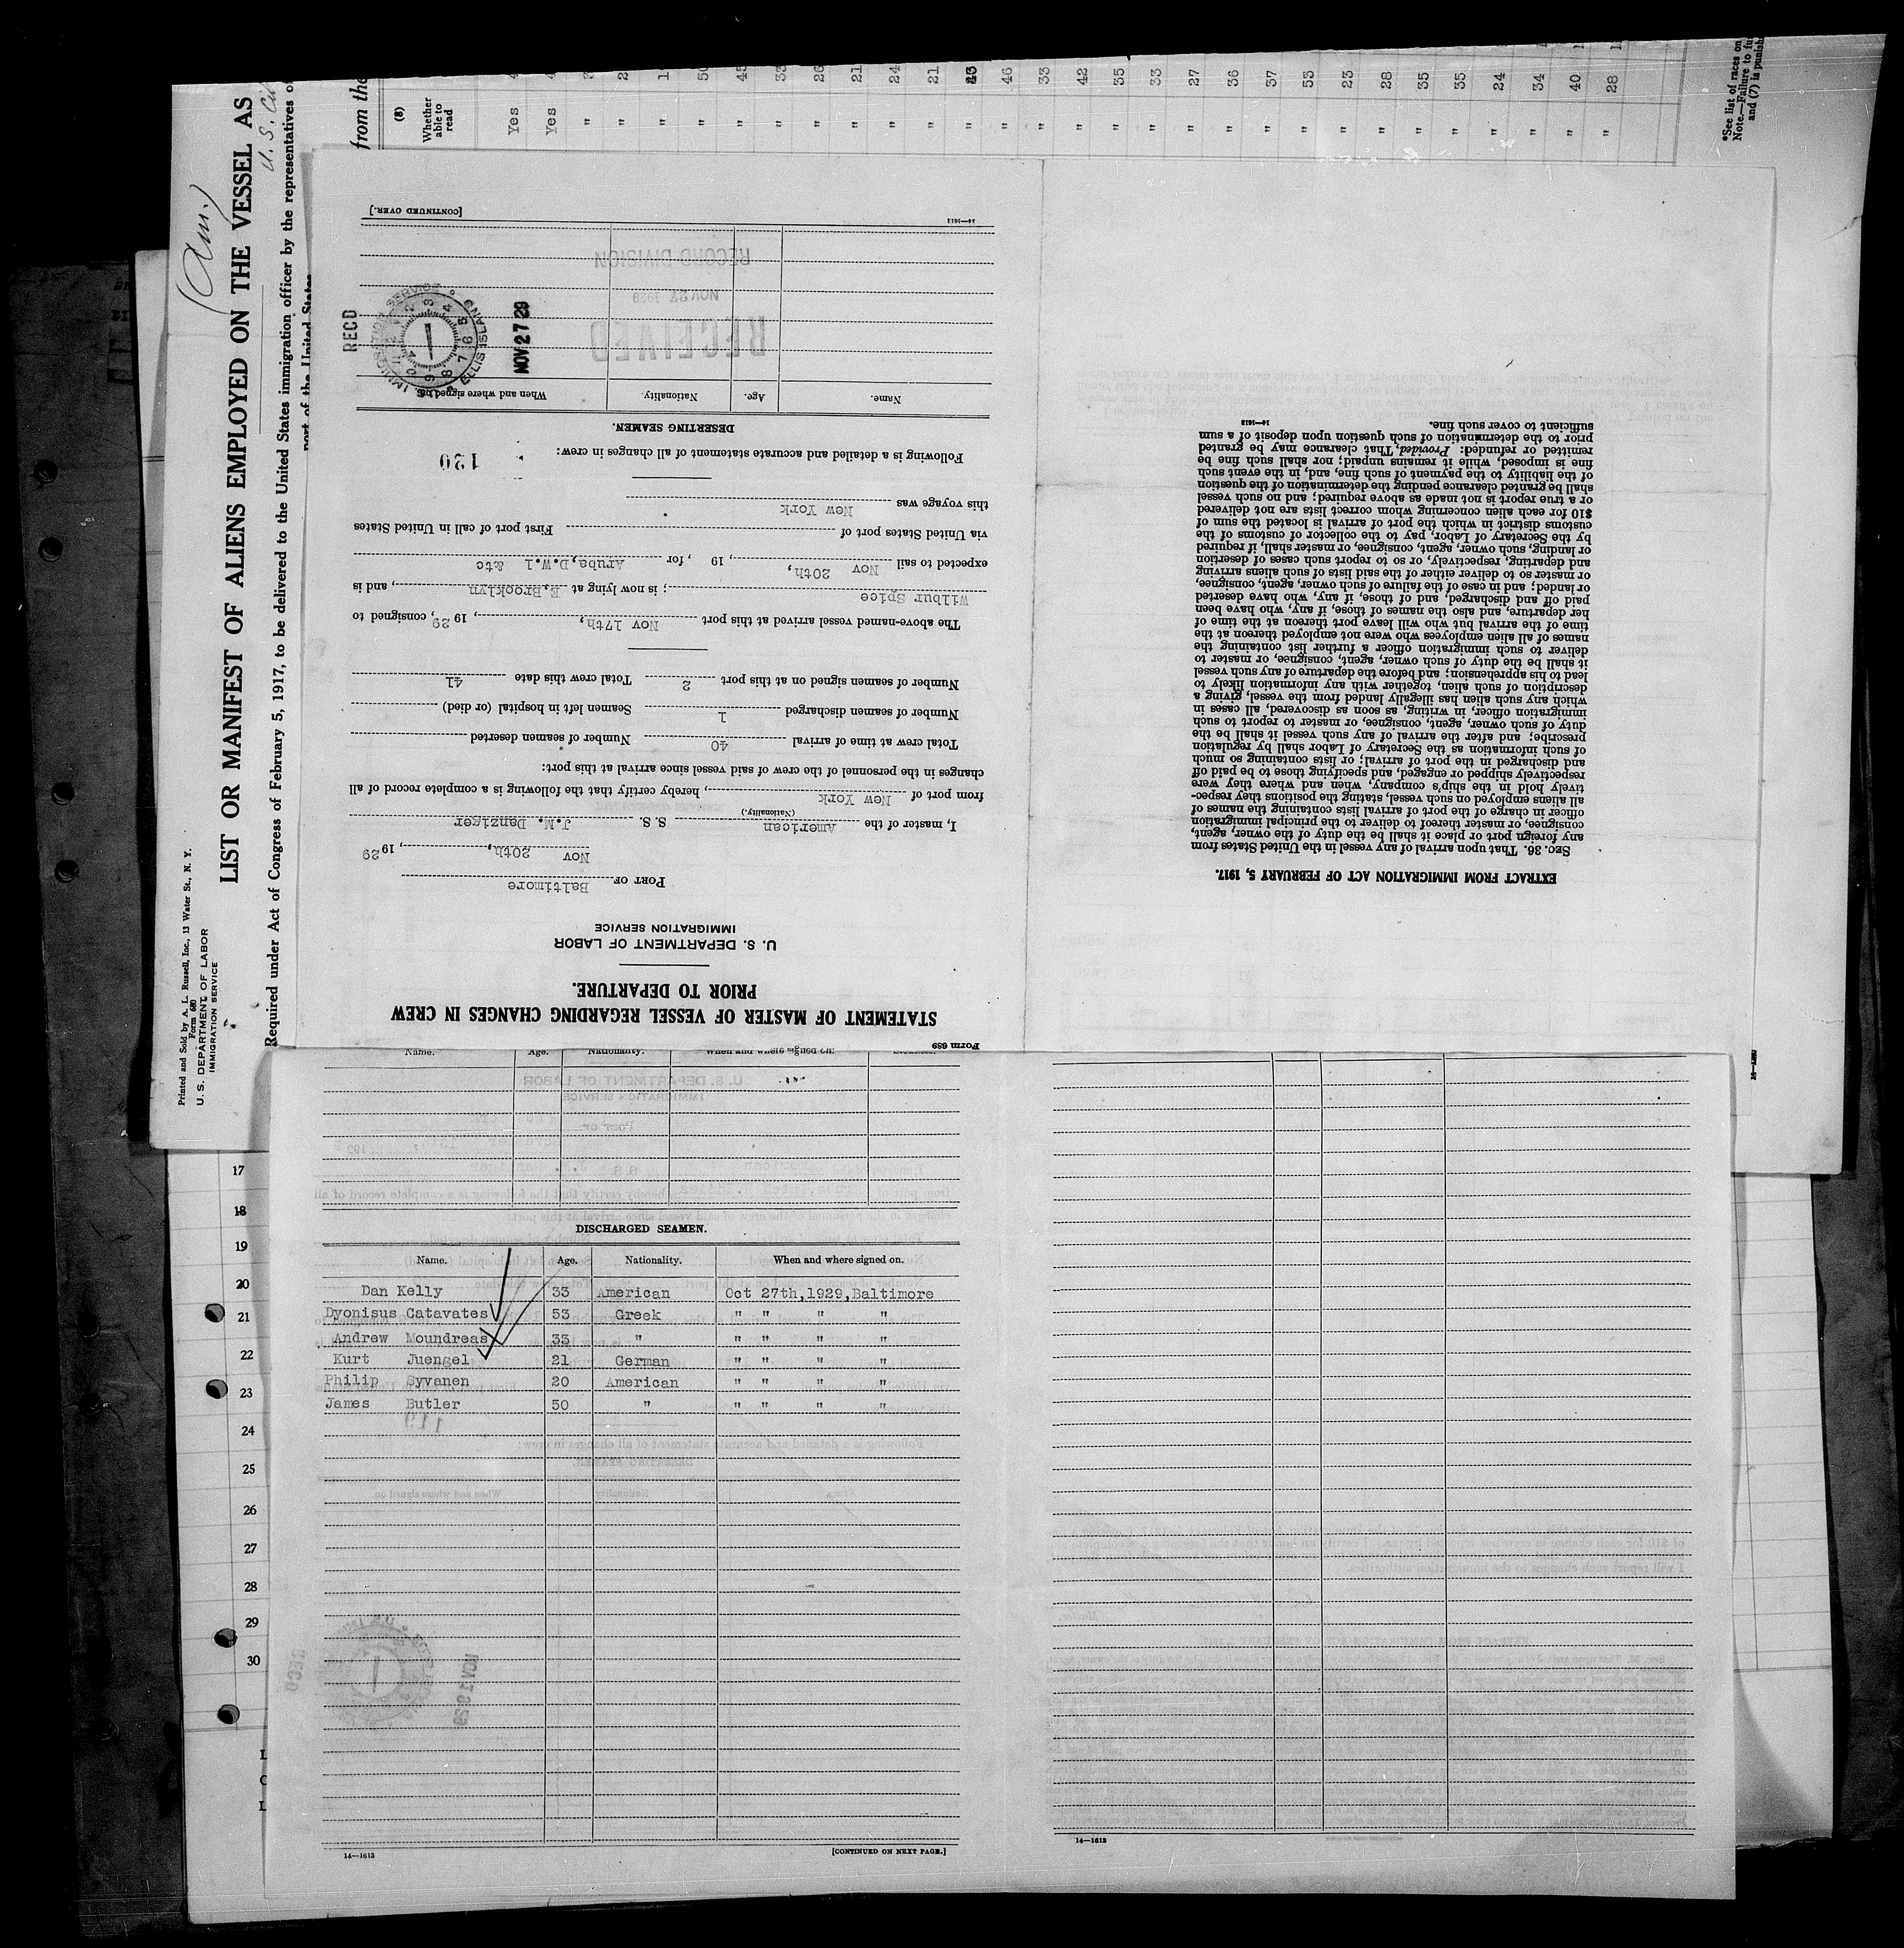 Printed and Sold by A. L. Russell, Inc., 13 Water St., N. Y.
Form 680
U. S. DEPARTMENT OF LABOR
IMMIGRATION SERVICE
(Am.)
LIST OR MANIFEST OF ALIENS EMPLOYED ON THE VESSEL AS
U. S. Cit
Required under Act of Congress of February 5, 1917, to be delivered to the United States immigration officer by the representatives of
port of the United States
from the
(8)
Whether able to read
Yes
Yes
" " " " " " " " " " " " " " " " " " " " " " " " " " " "
50 45 33 26 21 24 21 46 33 42 35 33 27 36 37 53 23 28 35 35 24 34 40 28
*See list of races on
Note.—Failure to fu
and (7) is punish
Form 689
STATEMENT OF MASTER OF VESSEL REGARDING CHANGES IN CREW
PRIOR TO DEPARTURE.
U. S. DEPARTMENT OF LABOR
IMMIGRATION SERVICE
PORT OF Baltimore
Nov 20th, , 1929
I, master of the American S. S. J.M. Danziger
(Nationality.)
from port of New York , hereby certify that the following is a complete record of all
changes in the personnel of the crew of said vessel since arrival at this port:
Total crew at time of arrival 40 Number of seamen deserted
Number of seamen discharged 1 Seamen left in hospital (or died)
Number of seamen signed on at this port 2 Total crew this date 41
The above-named vessel arrived at this port Nov 17th, , 1929, consigned to
Wilbur Spice ; is now lying at E.Brooklyn , and is
expected to sail Nov 20th, , 19 , for Aruba,D.W.I &tc
via United States port of First port of call in United States
this voyage was New York
Following is a detailed and accurate statement of all changes in crew:
120
DESERTING SEAMEN.
Name. Age. Nationality. When and where signed on.
RECEIVED
NOV 27 1929
RECORD DIVISION
REC'D
NOV 27 29
U.S. IMMIGRATION SERVICE ELLIS ISLAND
14—1613
[CONTINUED OVER.]
EXTRACT FROM IMMIGRATION ACT OF FEBRUARY 5, 1917.
SEC. 36. That upon arrival of any vessel in the United States from
any foreign port or place it shall be the duty of the owner, agent,
consignee, or master thereof to deliver to the principal immigration
officer in charge of the port of arrival lists containing the names of
all aliens employed on such vessel, stating the positions they respec-
tively hold in the ship's company, when and where they were
respectively shipped or engaged, and specifying those to be paid off
and discharged in the port of arrival; or lists containing so much
of such information as the Secretary of Labor shall by regulation
prescribe; and after the arrival of any such vessel it shall be the
duty of such owner, agent, consignee, or master to report to such
immigration officer, in writing, as soon as discovered, all cases in
which any such alien has illegally landed from the vessel, giving a
description of such alien, together with any information likely to
lead to his apprehension; and before the departure of any such vessel
it shall be the duty of such owner, agent, consignee, or master to
deliver to such immigration officer a further list containing the
names of all alien employees who were not employed thereon at the
time of the arrival but who will leave port thereon at the time of
her departure, and also the names of those, if any, who have been
paid off and discharged, and of those, if any, who have deserted
or landed; and in case of the failure of such owner, agent, consignee,
or master so to deliver either of the said lists of such aliens arriving
and departing, respectively, or so to report such cases of desertion
or landing, such owner, agent, consignee, or master shall, if required
by the Secretary of Labor, pay to the collector of customs of the
customs district in which the port of arrival is located the sum of
$10 for each alien concerning whom correct lists are not delivered
or a true report is not made as above required; and no such vessel
shall be granted clearance pending the determination of the question
of the liability to the payment of such fine, and, in the event such
fine is imposed, while it remains unpaid; nor shall such fine be
remitted or refunded: Provided, That clearance may be granted
prior to the determination of such question upon deposit of a sum
sufficient to cover such fine.
14—1613
Name. Age. Nationality. When and where signed on.
DISCHARGED SEAMEN.
Name. Age. Nationality. When and where signed on.
Dan Kelly 33 American Oct 27th,1929,Baltimore
Dyonisus Catavates 53 Greek " " " "
Andrew Moundreas 33 " " " " "
Kurt Juengel 21 German " " " "
Philip Syvanen 20 American " " " "
James Butler 50 " " " " "
14—1613
[CONTINUED ON NEXT PAGE.]
14—1613
17
18
19
20
21
22
23
24
25
26
27
28
29
30